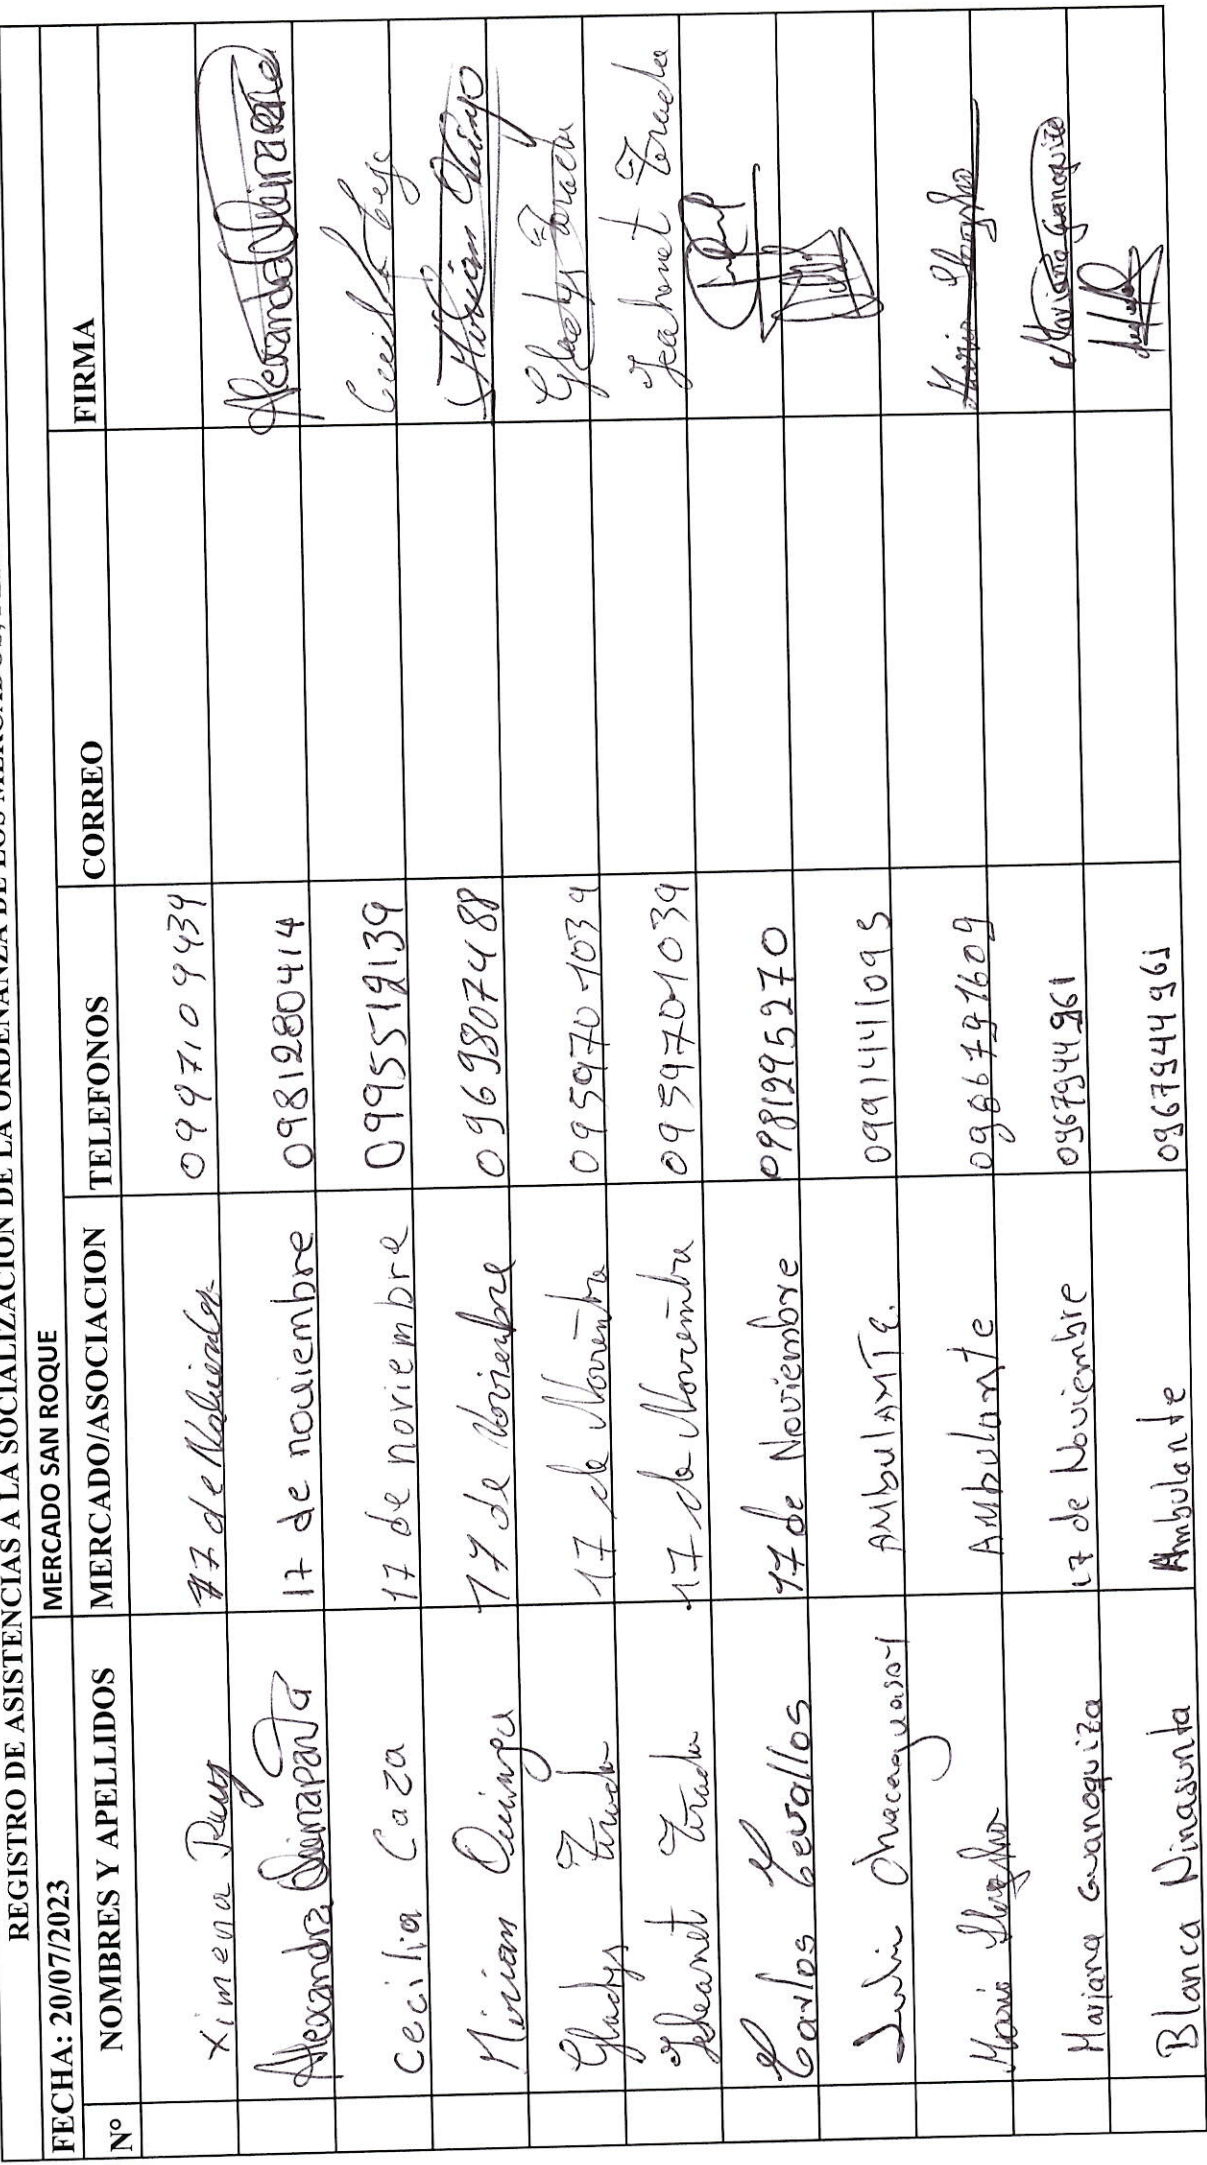 REGISTRO DE ASISTENCIAS A LA SOCIALIZACION DE LA ORDENANZA DE LOS MERCADOS,
FECHA: 20/07/2023 MERCADO SAN ROQUE
N° NOMBRES Y APELLIDOS MERCADO/ASOCIACION TELEFONOS CORREO FIRMA
Ximena 17 de 0997109439
Alexandra Quinapanta 17 de noviembre 0981280414
Cecilia Caza 17 de noviembre 0995519139 Cecilia
Mirian Quinga 17 de Noviembre 0969807488 Mirian
Gladys Tirado 17 de Noviembre 0959701039 Gladys Tirado
Jeheanet Tirado 17 de Noviembre 0959701039 Jeahanet Tirado
Carlos Cevallos 17 de Noviembre 0981295270
AMbulAMTE. 0991411095
AMbulante 0986797609
Mariana Guanoquiza 17 de Noviembre 0967944961 Mariana Guanoquiza
Blanca Ninasunta Ambulante 0967944961